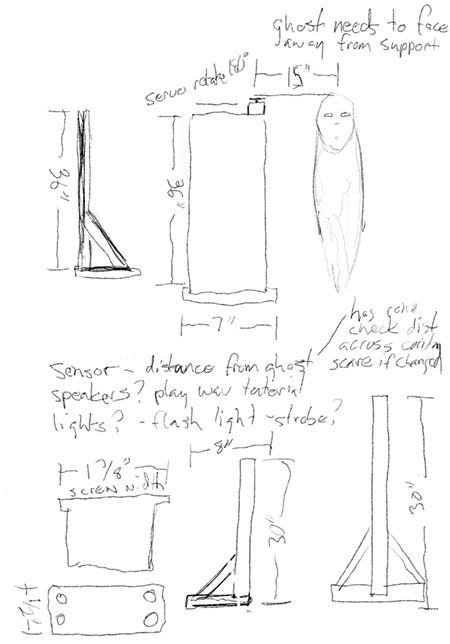 ghost needs to face
away from support
15"
servo rotate 180°
36"
36"
7"
has gone
check dist
across
scare if changed
sensor - distance from ghost
speakers? play wav tutorial
lights? - flash light - strobe?
8"
1 7/8"
screw width
30"
30"